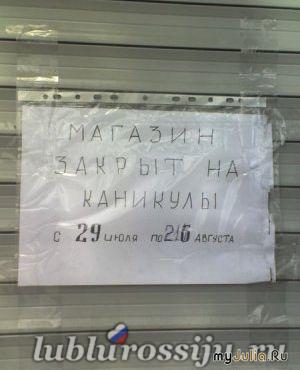 МАГАЗИН
ЗАКРЫТ НА
КАНИКУЛЫ
С 29 ИЮЛЯ ПО 26 АВГУСТА
lublurossiju.ru
myJulia.Ru